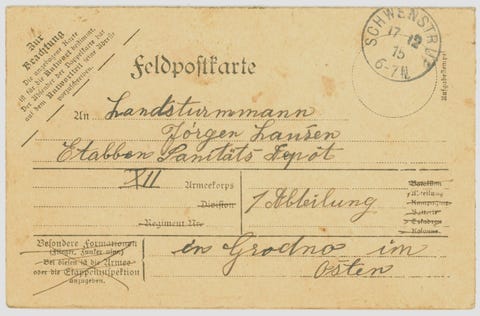 Zur
Beachtung
Die angebogene Karte
ist für die Antwort bestimmt.
Der Absender der Postkarte hat
auf dem Antwortteil seine Adresse
vorzuschreiben.
SCHWENSTRUP
17-12
15
6-7N.
Aufgabestempel
Feldpostkarte
An Landsturmmann
Jörgen Lausen
Etabben Sanitäts Depôt
XII Armeekorps
Division
Regiment Nr.
1 Abteilung
Bataillon
Abteilung
Kompagnie
Batterie
Eskadron
Kolonne
Besondere Formationen
(Flieger, Funker usw.)
Bei diesen ist die Armee
oder die Etappeninspektion
anzugeben.
in Grodno im
Osten